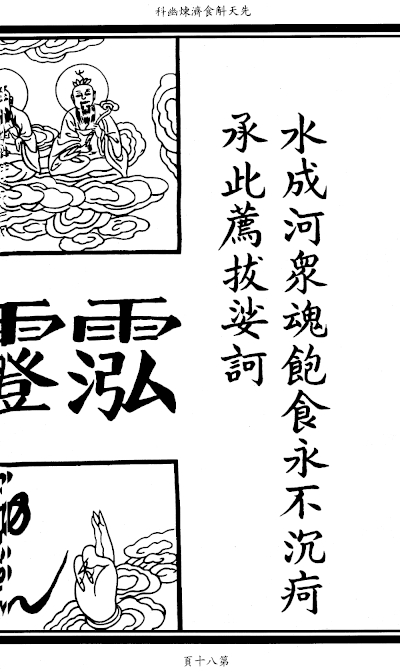 先天斛食濟煉幽科
水成河衆魂飽食永不沉疴
承此薦拔娑訶
第八十頁